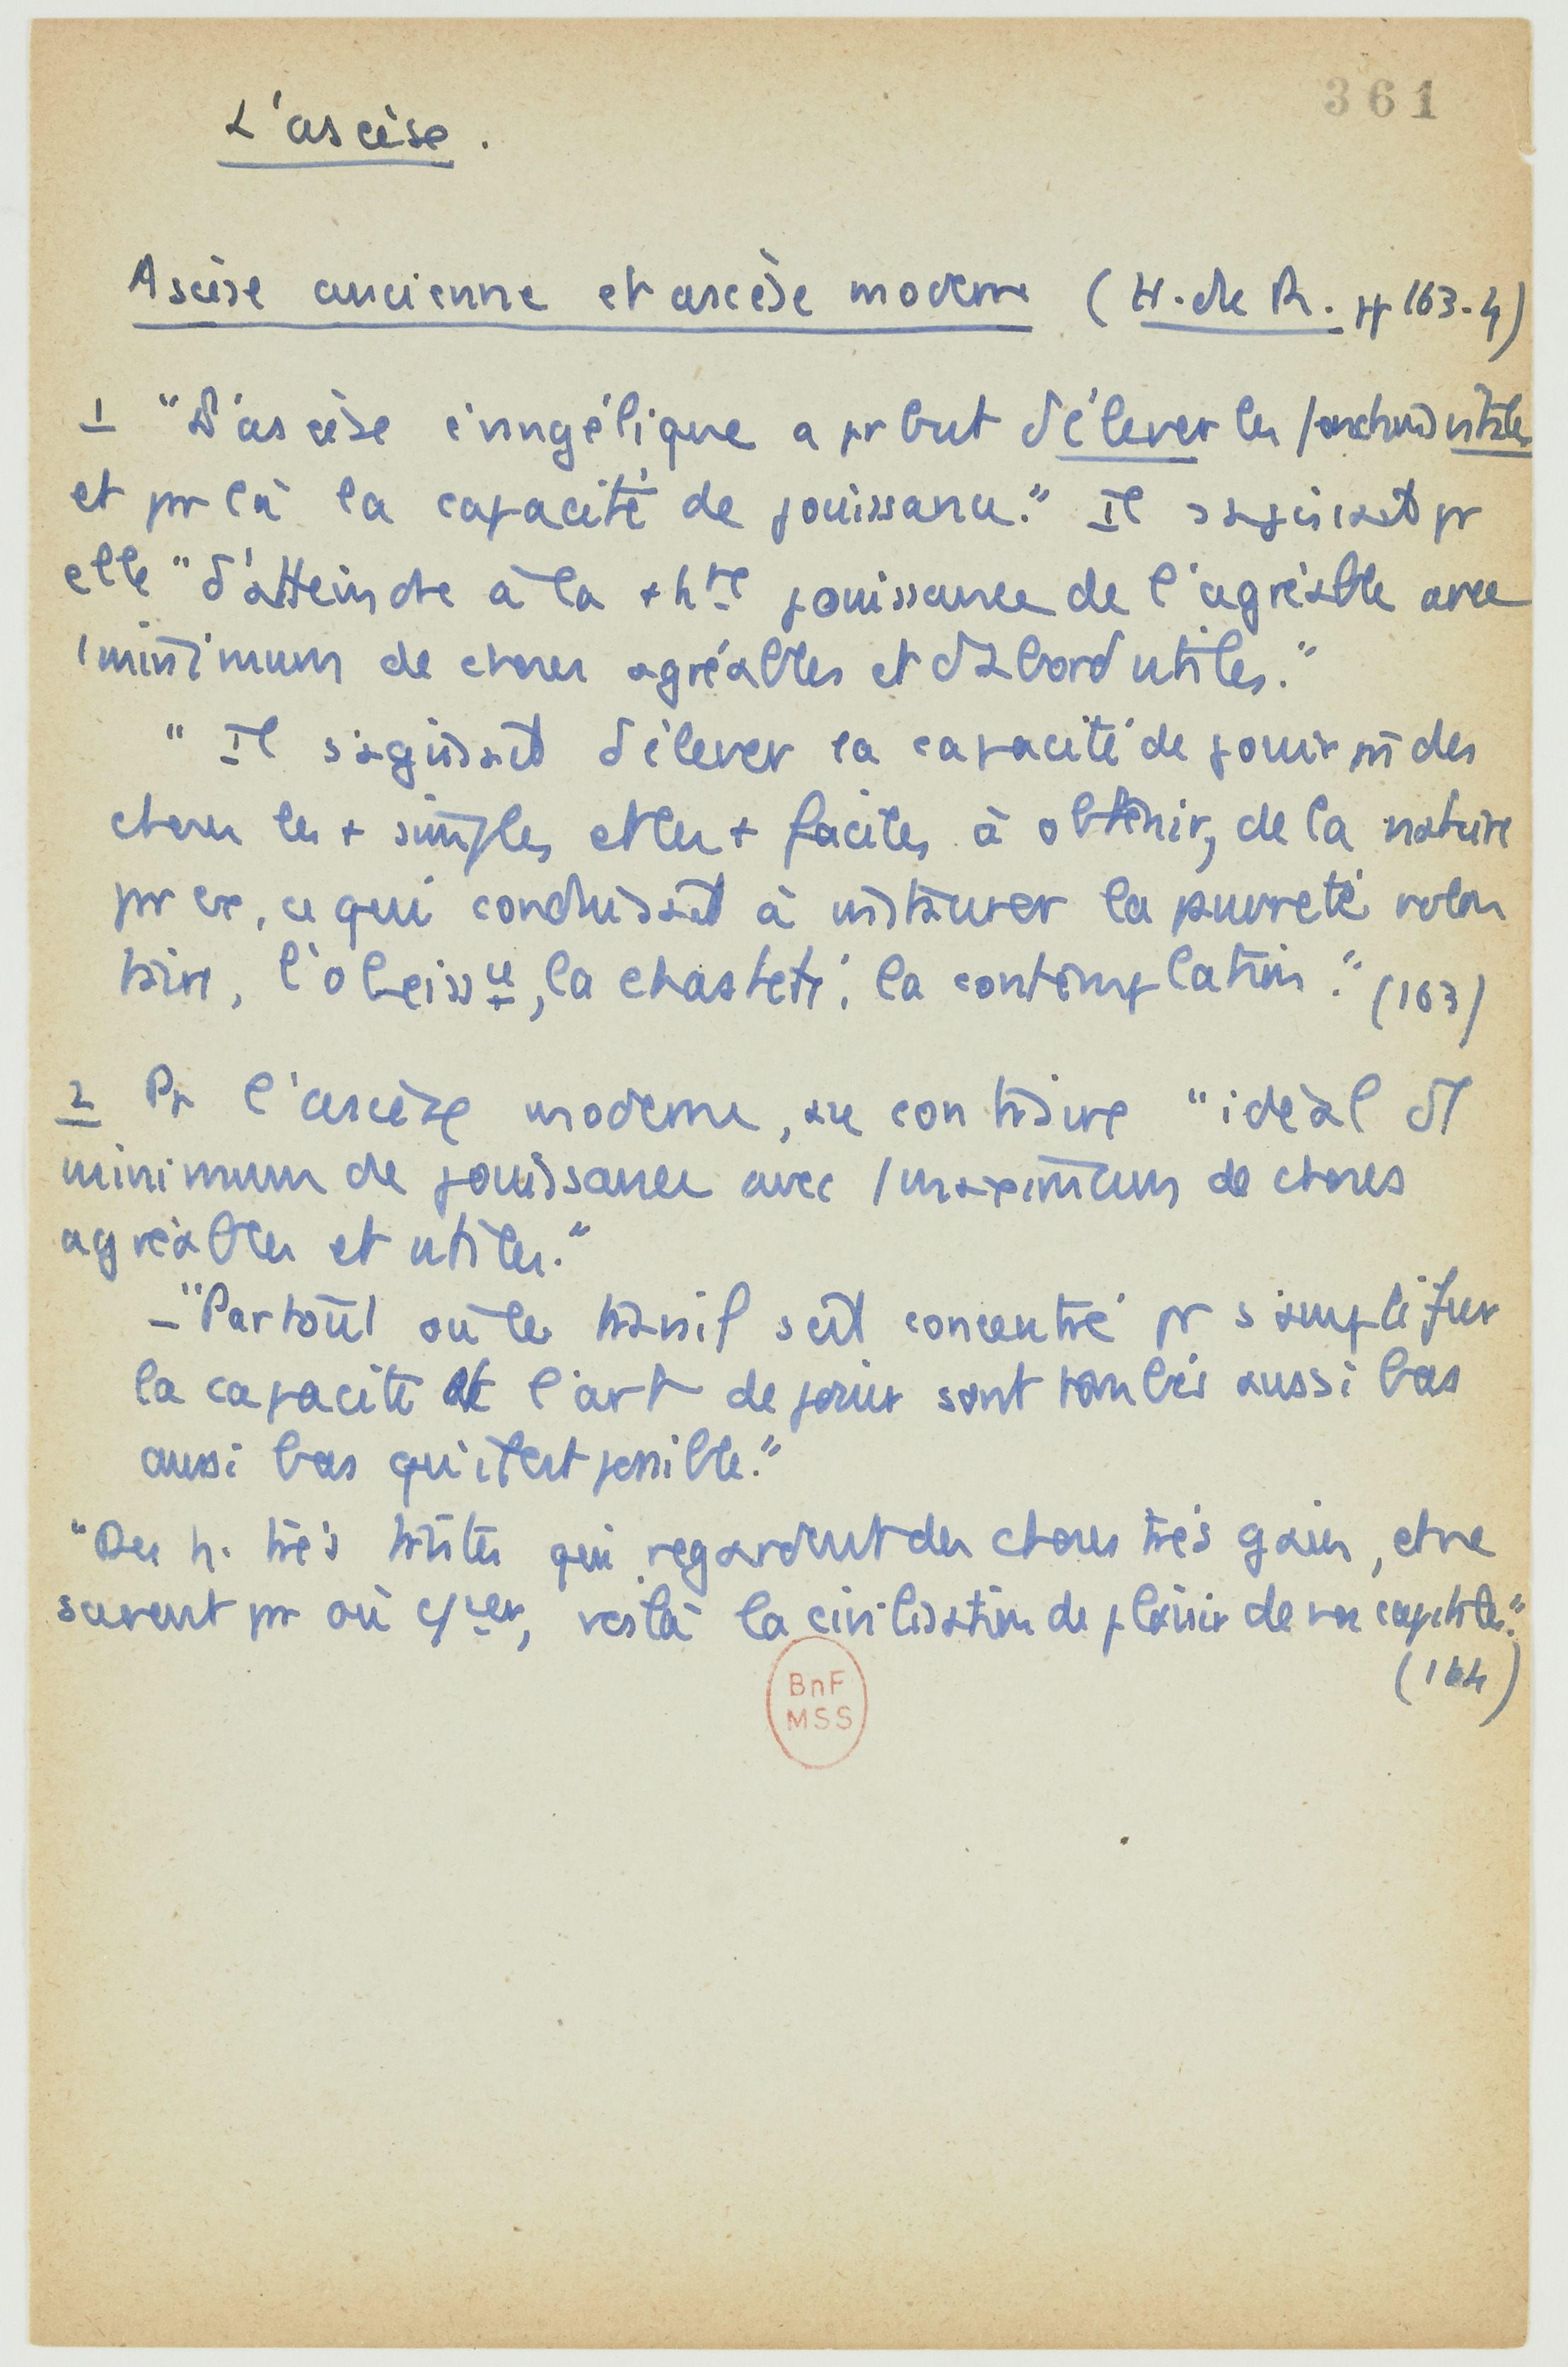 361
L'ascèse.
Ascèse ancienne et ascèse moderne (H. de R. pp 163-4)
1 "L'ascèse évangélique a pr but d'élever les fonctions vitales
et par là la capacité de jouissance." Il s'agissait pr
elle "d'atteindre à la + hte jouissance de l'agréable avec
1 minimum de choses agréables et d'abord utiles."
" Il s'agissait d'élever la capacité de jouir mm des
choses les + simples et les + faciles à obtenir, de la nature
pr ex, ce qui conduisait à instaurer la pauvreté volon
taire, l'obéissce, la chasteté, la contemplation." (163)
2 Pr l'ascèse moderne, au contraire "idéal d'1
minimum de jouissance avec 1 maximum de choses
agréables et utiles."
- "Partout où le travail s'est concentré pr s'amplifier
la capacité et l'art de jouir sont tombés aussi bas
aussi bas qu'il est possible."
"Des h. très tristes qui regardent des choses très gaies, et ne
savent par où cer, voilà la civilisation de plaisir de nos capitales."
(164)
BnF
MSS